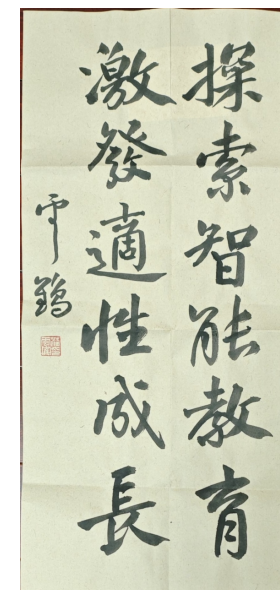 探索智能教育
激發適性成長
雲鶴